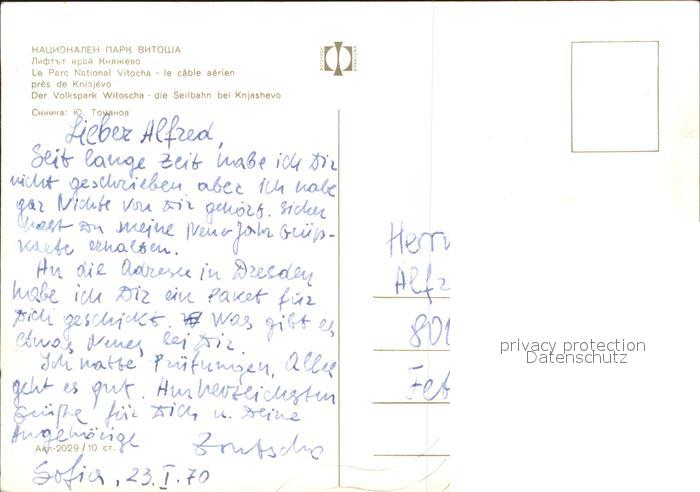 НАЦИОНАЛЕН ПАРК ВИТОША
Лифтът край Княжево
Le Parc National Vitocha - le câble aérien
près de Kniajévo
Der Volkspark Witoscha - die Seilbahn bei Knjashevo
Снимка: Ю. Томанов
Lieber Alfred,
Seit lange Zeit habe ich Dir
nicht geschrieben aber ich habe
gar Nichts von Dir gehört. Sicher
hast Du meine Neue Jahr Grüß-
karte erhalten.
An die Adresse in Dresden
habe ich Dir ein Paket für
Dich geschickt. Was gibt es
etwas Neues bei Dir.
Ich hatte Prüfungen, Alles
geht es gut. Am herzlichsten
Grüße für Dich u. Deine
Angehörige
Акл-2029/10 ст.
Sofia, 23.I.70
Herrn
Alfr
801
Fet
privacy protection
Datenschutz